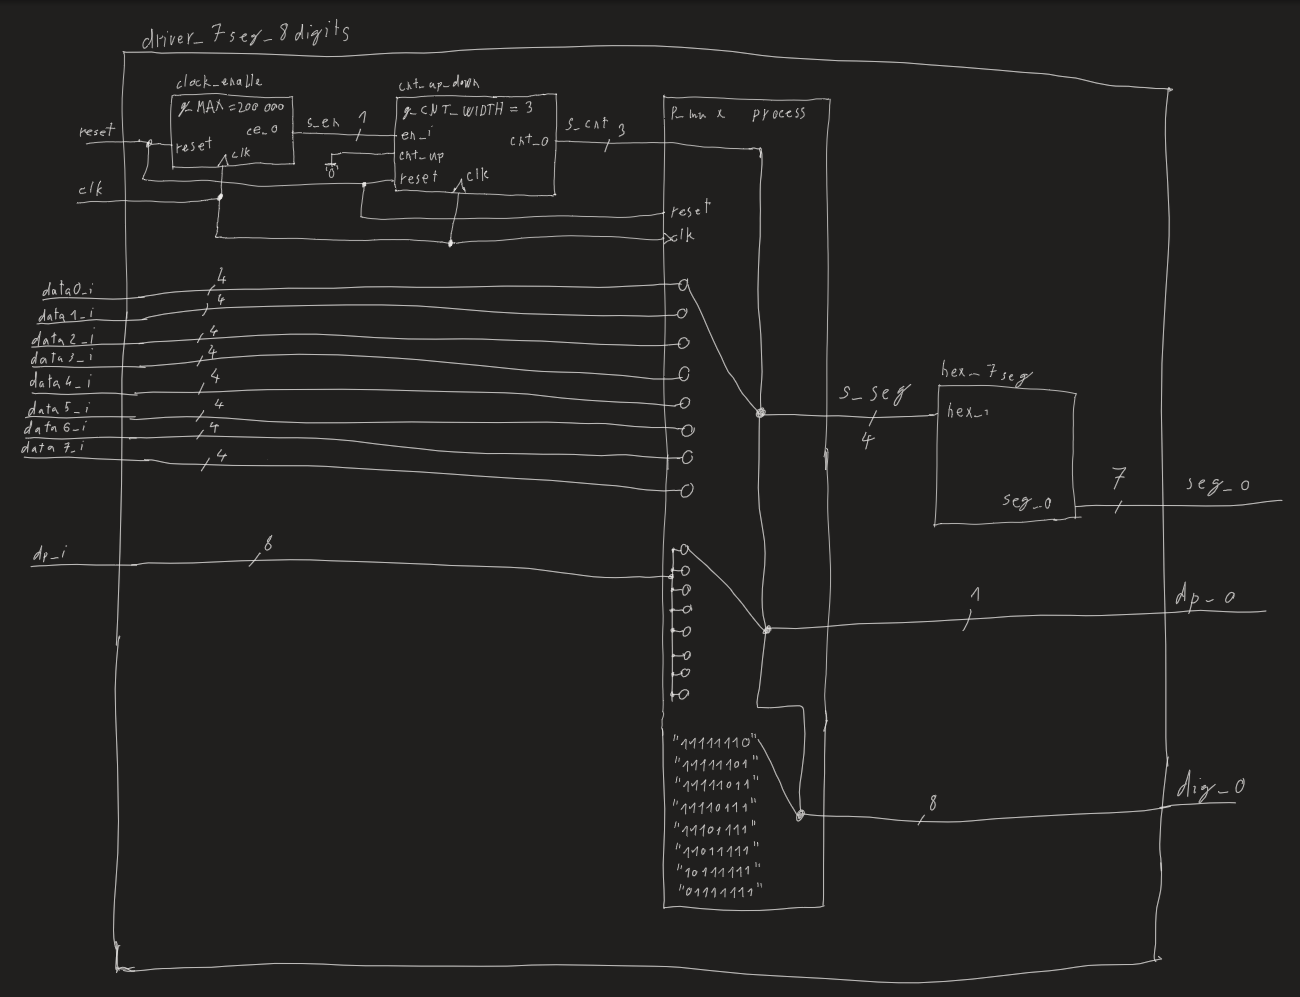 driver_7seg_8digits
clock_enable
g_MAX=200 000
ce_o
reset
clk
s_en
1
cnt_up_down
g_CNT_WIDTH = 3
en_i
cnt_up
reset
clk
cnt_o
'0'
s_cnt
3
p_mux process
reset
clk
reset
clk
data0_i
4
data1_i
4
data2_i
4
data3_i
4
data4_i
4
data5_i
4
data6_i
4
data7_i
4
s_seg
4
hex_7seg
hex_i
seg_o
7
seg_o
dp_i
8
1
dp_o
"11111110"
"11111101"
"11111011"
"11110111"
"11101111"
"11011111"
"10111111"
"01111111"
8
dig_o